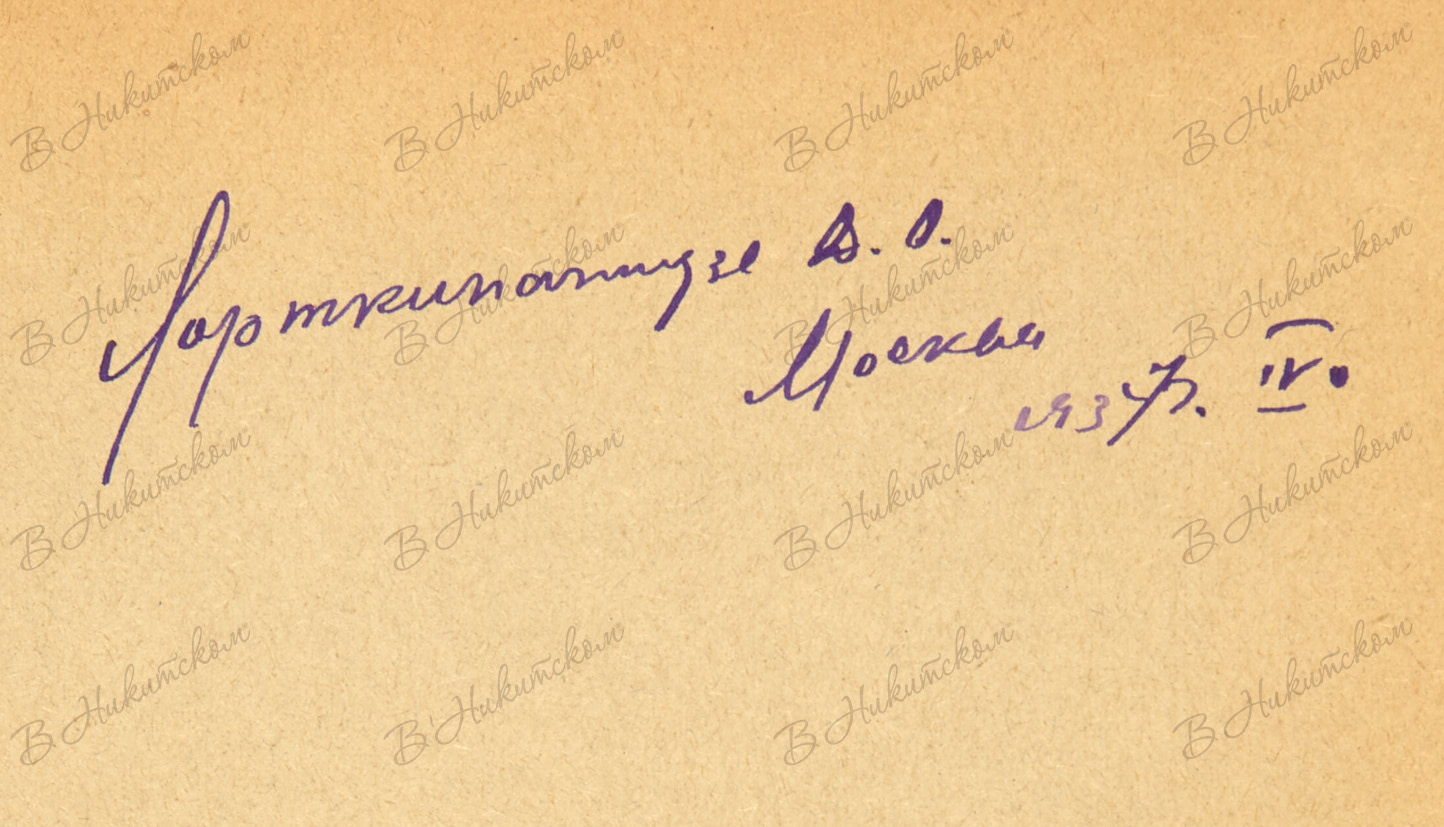 В Никитском В Никитском В Никитском В Никитском
В Никитском В Никитском В Никитском В Никитском
Лорткипанидзе Д. О.
Москва
1937. IV.
В Никитском В Никитском В Никитском В Никитском
В Никитском В Никитском В Никитском В Никитском